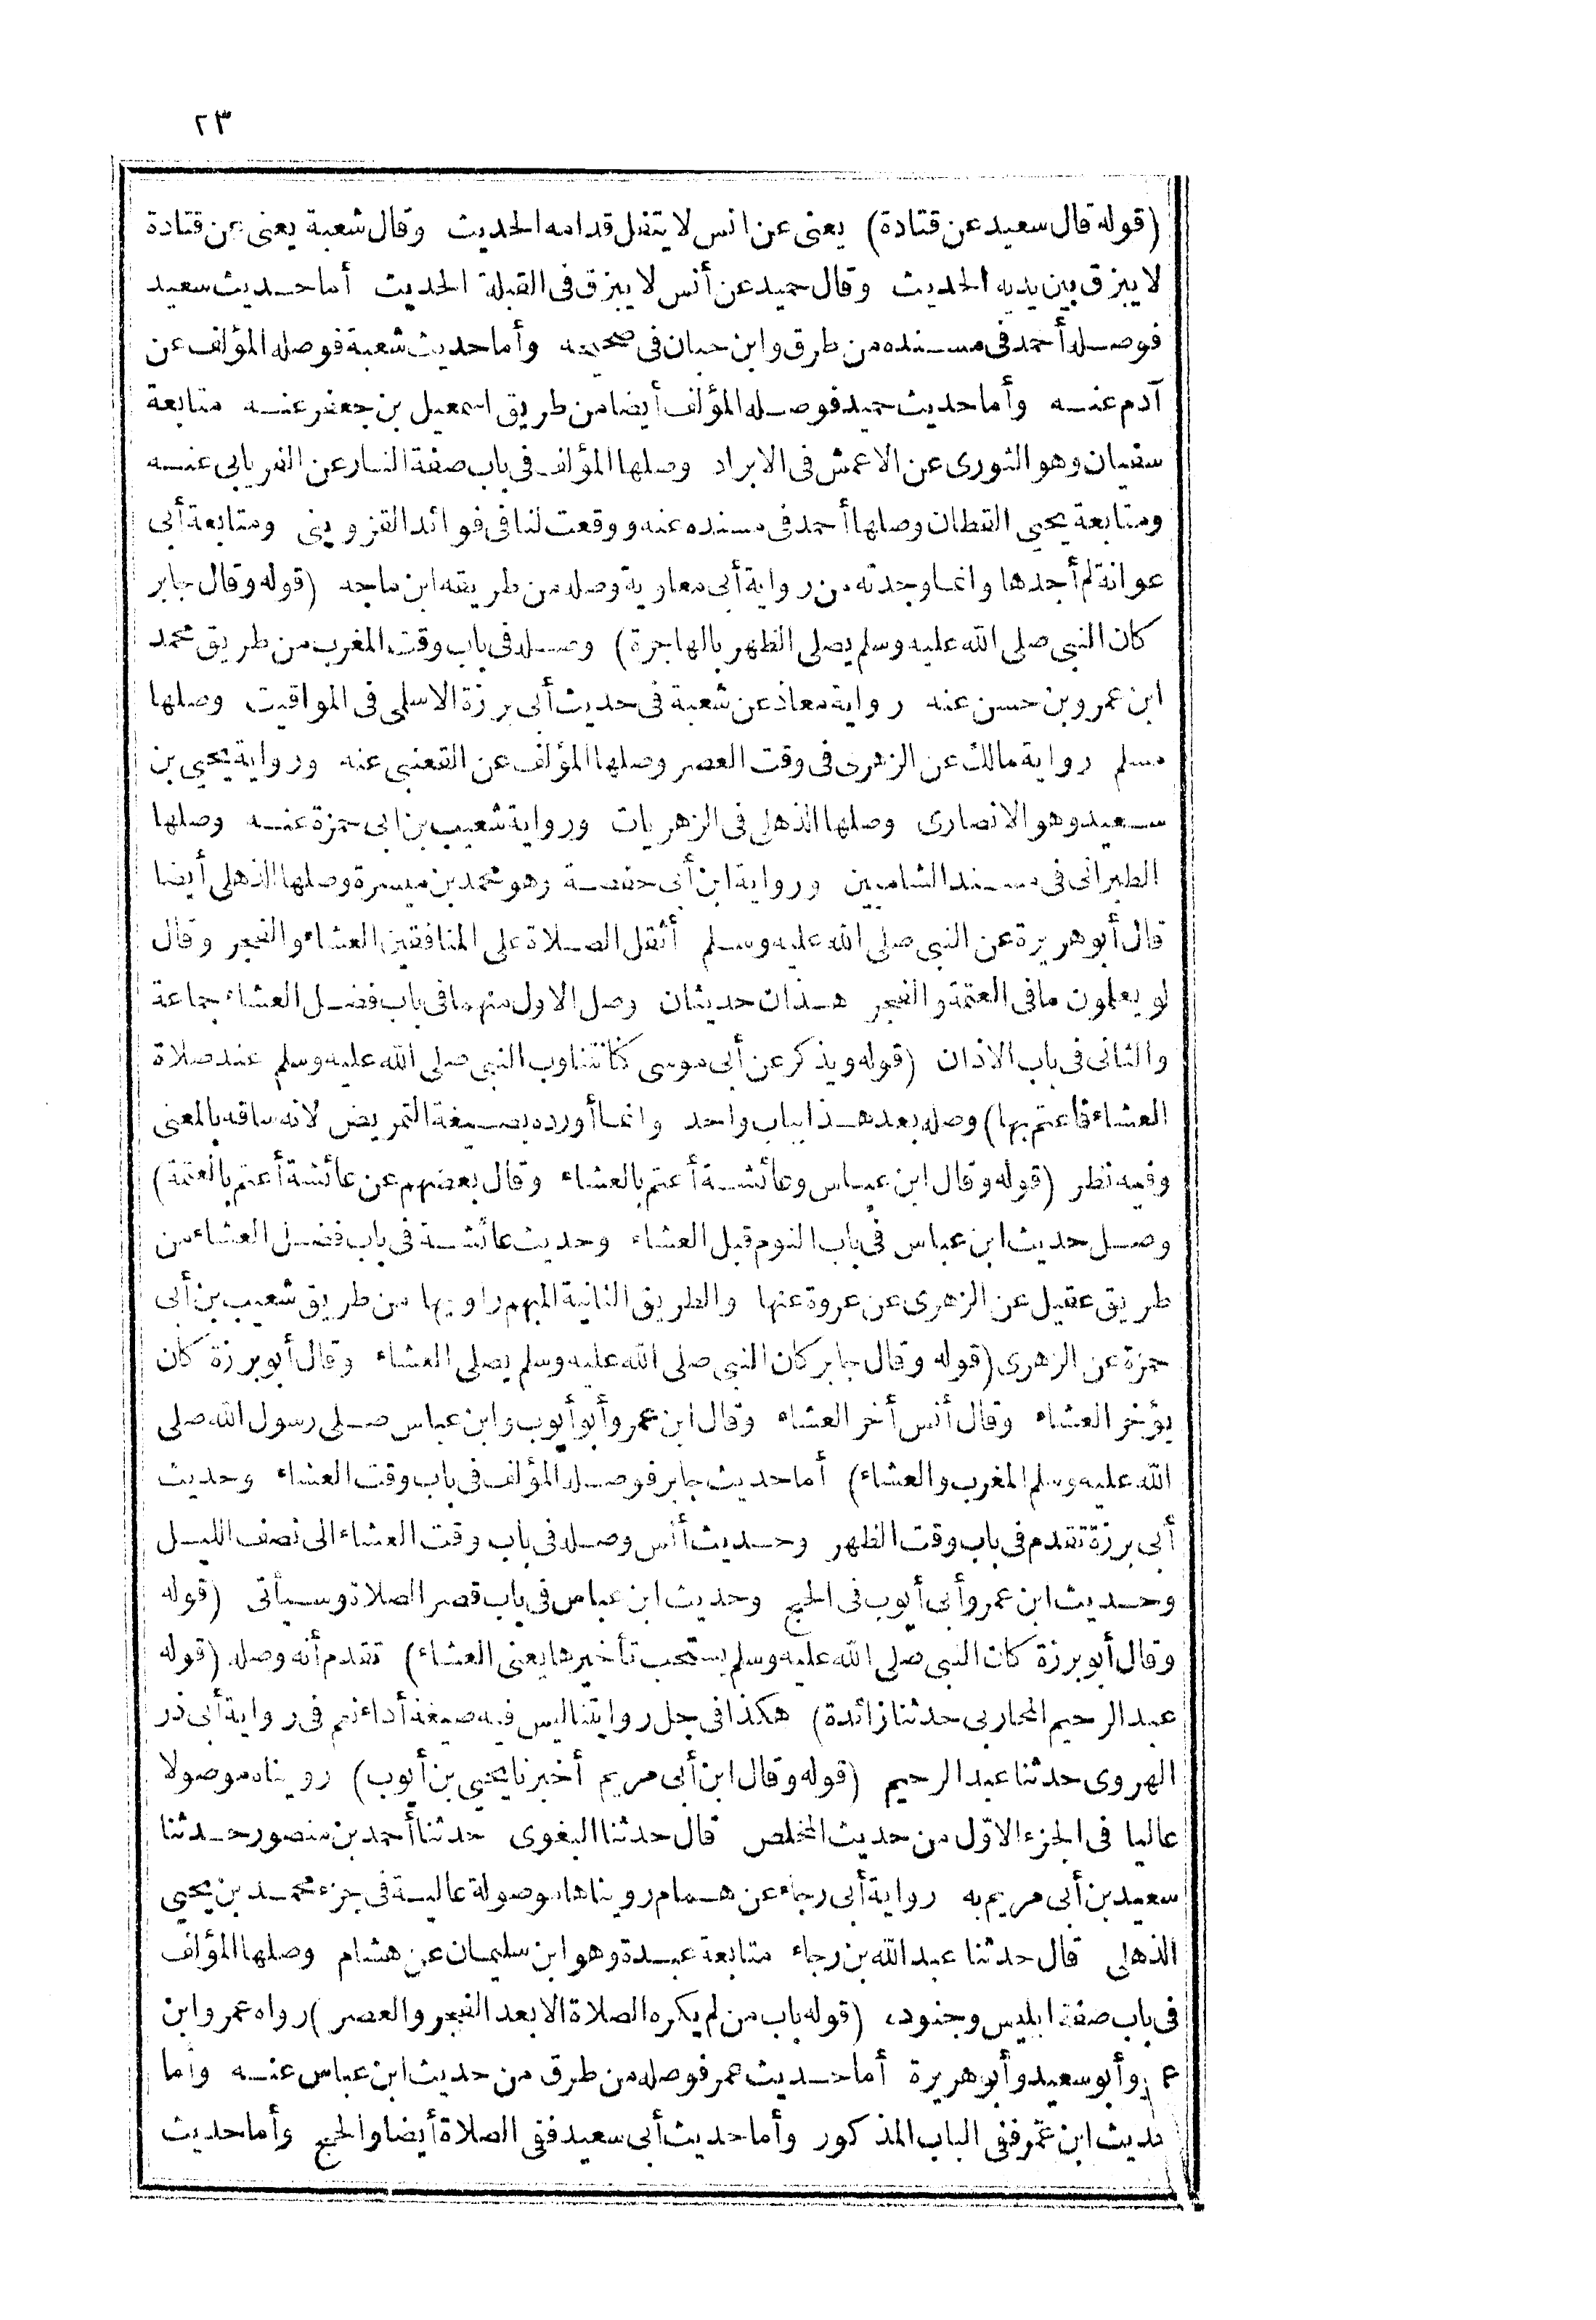 ٢٣
(قوله قال سعيد عن قتادة) يعنى عن انس لا يتفل قدامه الحديث وقال شعبة يعنى عن قتادة
لا يبزق بين يديه الحديث وقال حميد عن أنس لا يبزق فى القبلة الحديث أما حديث سعيد
فوصله أحمد فى مسنده من طرق وابن حبان فى صحيحه وأما حديث شعبة فوصله المؤلف عن
آدم عنه وأما حديث حميد فوصله المؤلف أيضا من طريق اسمعيل بن جعفر عنه متابعة
سفيان وهو الثورى عن الاعمش فى الابراد وصلها المؤلف فى باب صفة النار عن الفريابى عنه
ومتابعة يحيي القطان وصلها أحمد فى مسنده عنه ووقعت لنا فى فوائد القزوينى ومتابعة أبى
عوانة لم أجدها وانما وجدته من رواية أبى معاوية وصله من طريقه ابن ماجه (قوله وقال جابر
كان النبى صلى الله عليه وسلم يصلى الظهر بالهاجرة) وصله فى باب وقت المغرب من طريق محمد
ابن عمرو بن حسن عنه رواية معاذ عن شعبة فى حديث أبى برزة الاسلمى فى المواقيت وصلها
مسلم رواية مالك عن الزهرى فى وقت العصر وصلها المؤلف عن القعنبى عنه ورواية يحيي بن
سعيد وهو الانصارى وصلها الذهلى فى الزهريات ورواية شعيب بن ابى حمزة عنه وصلها
الطبرانى فى مسند الشاميين ورواية ابن أبى حفصة وهو محمد بن ميسرة وصلها الذهلى أيضا
قال أبو هريرة عن النبى صلى الله عليه وسلم أثقل الصلاة على المنافقين العشاء والفجر وقال
لو يعلمون ما فى العتمة والفجر هذان حديثان وصل الاول منهما فى باب فضل العشاء جماعة
والثانى فى باب الاذان (قوله ويذكر عن أبى موسى كنا نتناوب النبى صلى الله عليه وسلم عند صلاة
العشاء فاعتم بها) وصله بعد هذا بباب واحد وانما أورده بصيغة التمريض لانه ساقه بالمعنى
وفيه نظر (قوله وقال ابن عباس وعائشة أعتم بالعشاء وقال بعضهم عن عائشة أعتم بالعتمة)
وصل حديث ابن عباس فى باب النوم قبل العشاء وحديث عائشة فى باب فضل العشاء من
طريق عقيل عن الزهرى عن عروة عنها والطريق الثانية المبهم راويها من طريق شعيب بن أبى
حمزة عن الزهرى (قوله وقال جابر كان النبى صلى الله عليه وسلم يصلى العشاء وقال أبو برزة كان
يؤخر العشاء وقال أنس أخر العشاء وقال ابن عمر وأبو أيوب وابن عباس صلى رسول الله صلى
الله عليه وسلم المغرب والعشاء) أما حديث جابر فوصله المؤلف فى باب وقت العشاء وحديث
أبى برزة تقدم فى باب وقت الظهر وحديث أنس وصله فى باب وقت العشاء الى نصف الليل
وحديث ابن عمر وأبى أيوب فى الحج وحديث ابن عباس فى باب قصر الصلاة وسيأتى (قوله
وقال أبو برزة كان النبى صلى الله عليه وسلم يستحب تأخيرها يعنى العشاء) تقدم أنه وصله (قوله
عبد الرحيم المحاربى حدثنا زائدة) هكذا فى جل رواياتنا ليس فيه صيغة أداء نعم فى رواية أبى ذر
الهروى حدثنا عبد الرحيم (قوله وقال ابن أبى مريم أخبرنا يحيي بن أيوب) رويناه موصولا
عاليا فى الجزء الاول من حديث المخلص قال حدثنا البغوى حدثنا أحمد بن منصور حدثنا
سعيد بن أبى مريم به رواية أبى رجاء عن همام رويناها موصولة عالية فى جزء محمد بن يحيي
الذهلى قال حدثنا عبد الله بن رجاء متابعة عبدة وهو ابن سليمان عن هشام وصلها المؤلف
فى باب صفة ابليس وجنوده (قوله باب من لم يكره الصلاة الا بعد الفجر والعصر) رواه عمر وابن
عمر وأبو سعيد وأبو هريرة أما حديث عمر فوصله من طرق من حديث ابن عباس عنه وأما
حديث ابن عمر ففى الباب المذكور وأما حديث أبى سعيد ففى الصلاة أيضا والحج وأما حديث